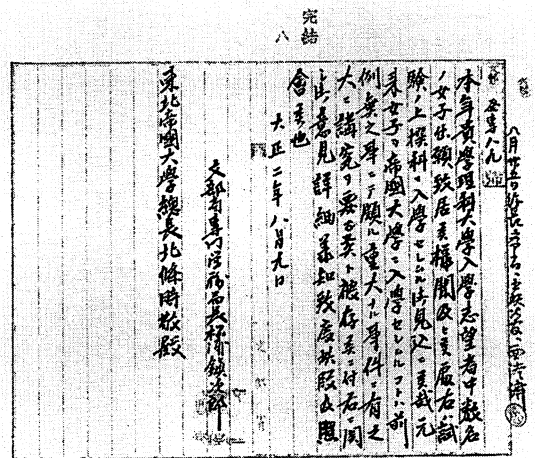 完結
八
本年貴學理科大學入學志望者中數名
ノ女子出願致居候樣聞及候處右ハ試
驗ノ上撰科ニ入學セシムル御見込ニ候哉元
來女子ヲ帝國大學ニ入學セシムルコトハ前
例無之事ニテ頗ル重大ナル事件ニ有之
大ニ講究ヲ要シ候ト被存候ニ付右ニ関
シ御意見詳細承知致度此段及照
會候也
大正二年八月九日
文部省專門學務局長松浦鎮次郎
東北帝國大學總長北條時敬殿